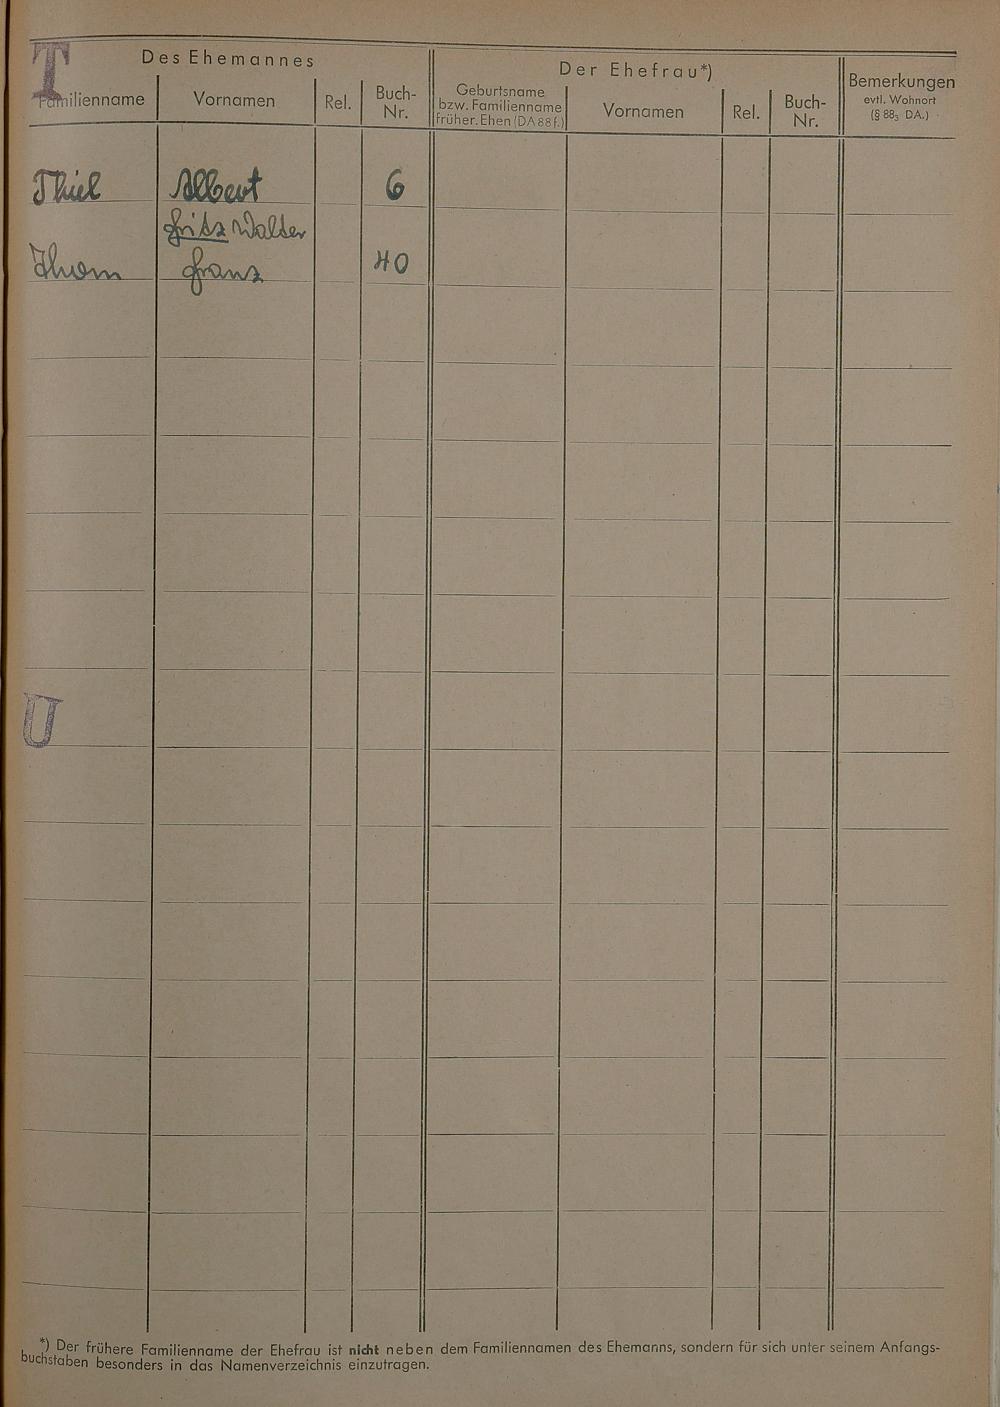 T
Des Ehemannes
Der Ehefrau*)
Bemerkungen
evtl. Wohnort
(§ 88₅ DA.)
Familienname
Vornamen
Rel.
Buch-
Nr.
Geburtsname
bzw. Familienname
früher. Ehen (DA 88 f.)
Vornamen
Rel.
Buch-
Nr.
Thiel Albert 6
Fritz Walter
Thom Franz 40
U
*) Der frühere Familienname der Ehefrau ist nicht neben dem Familiennamen des Ehemanns, sondern für sich unter seinem Anfangs-
buchstaben besonders in das Namenverzeichnis einzutragen.